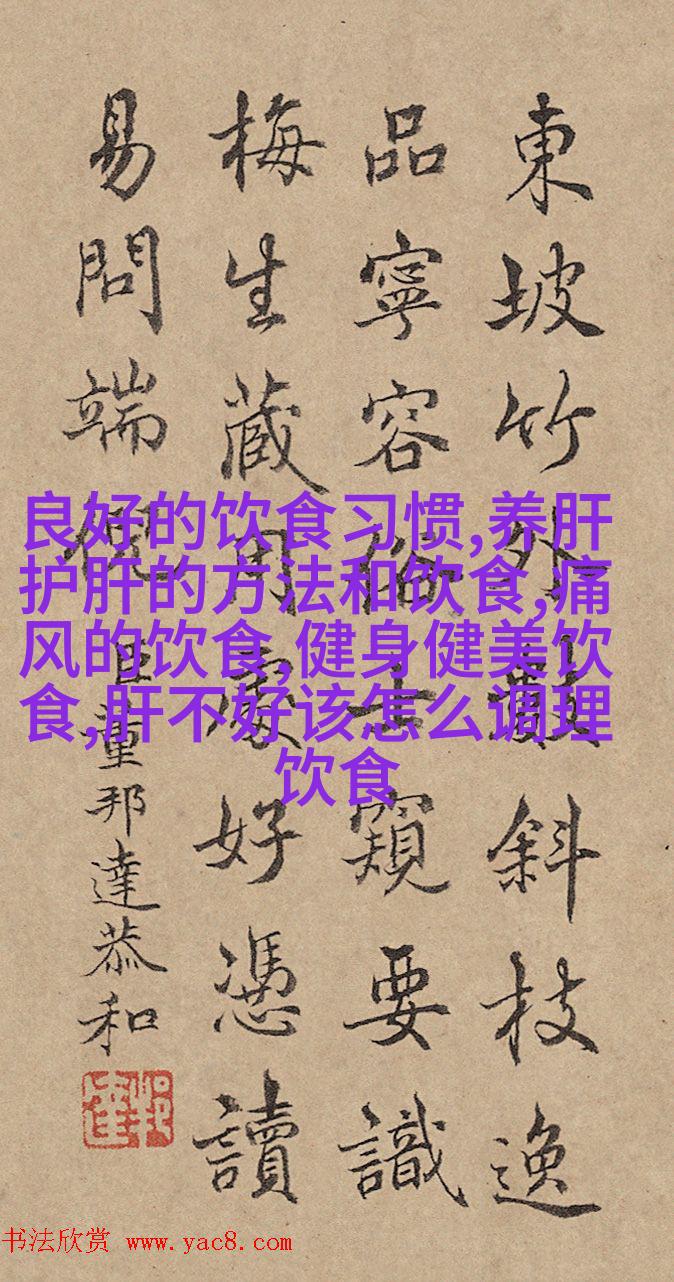 東坡竹外數斜枝逸
品寧容俗士窺要識
梅生藏用處好憑讀
易問端倪
臣董邦達恭和
良好的饮食习惯,养肝
护肝的方法和饮食,痛
风的饮食,健身健美饮
食,肝不好该怎么调理
饮食
书法欣赏 www.yac8.com